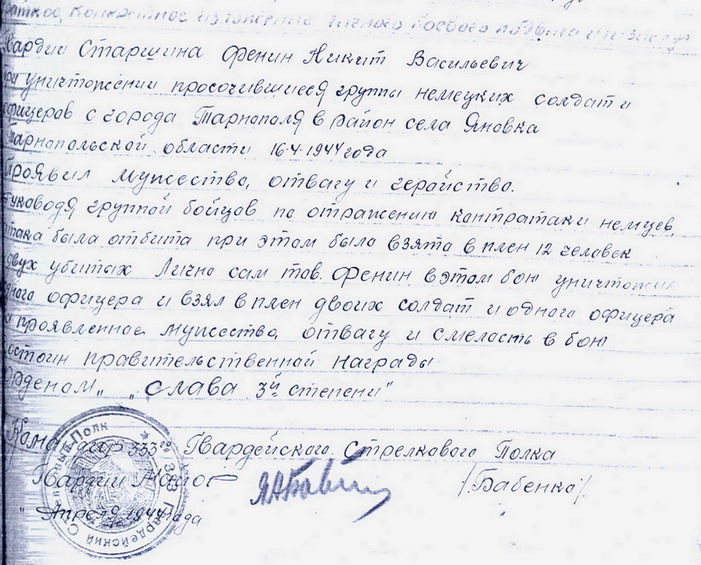 раткое, конкретное изложение личного боевого подвига или заслуг
вардии Старшина Фенин Никит Васильевич
ри уничтожении просочившиеся группы немецких солдат и
фицеров с города Тарнополя в район села Яновка
арнопольской области 16.4.1944 года
проявил мужество, отвагу и геройство.
уководя группой бойцов по отражению контратаки немцев,
така была отбита при этом было взято в плен 12 человек
двух убитых Лично сам тов. Фенин в этом бою уничтожил
дного офицера и взял в плен двоих солдат и одного офицера
а проявленное мужество, отвагу и смелость в бою
остоин правительственной награды
Орденом „ „Слава 3й степени"
Командир 333 го Гвардейского Стрелкового Полка
Гвардии Майор /Бабенко/
" Апреля 1944 года
333 Гвардейский Полк